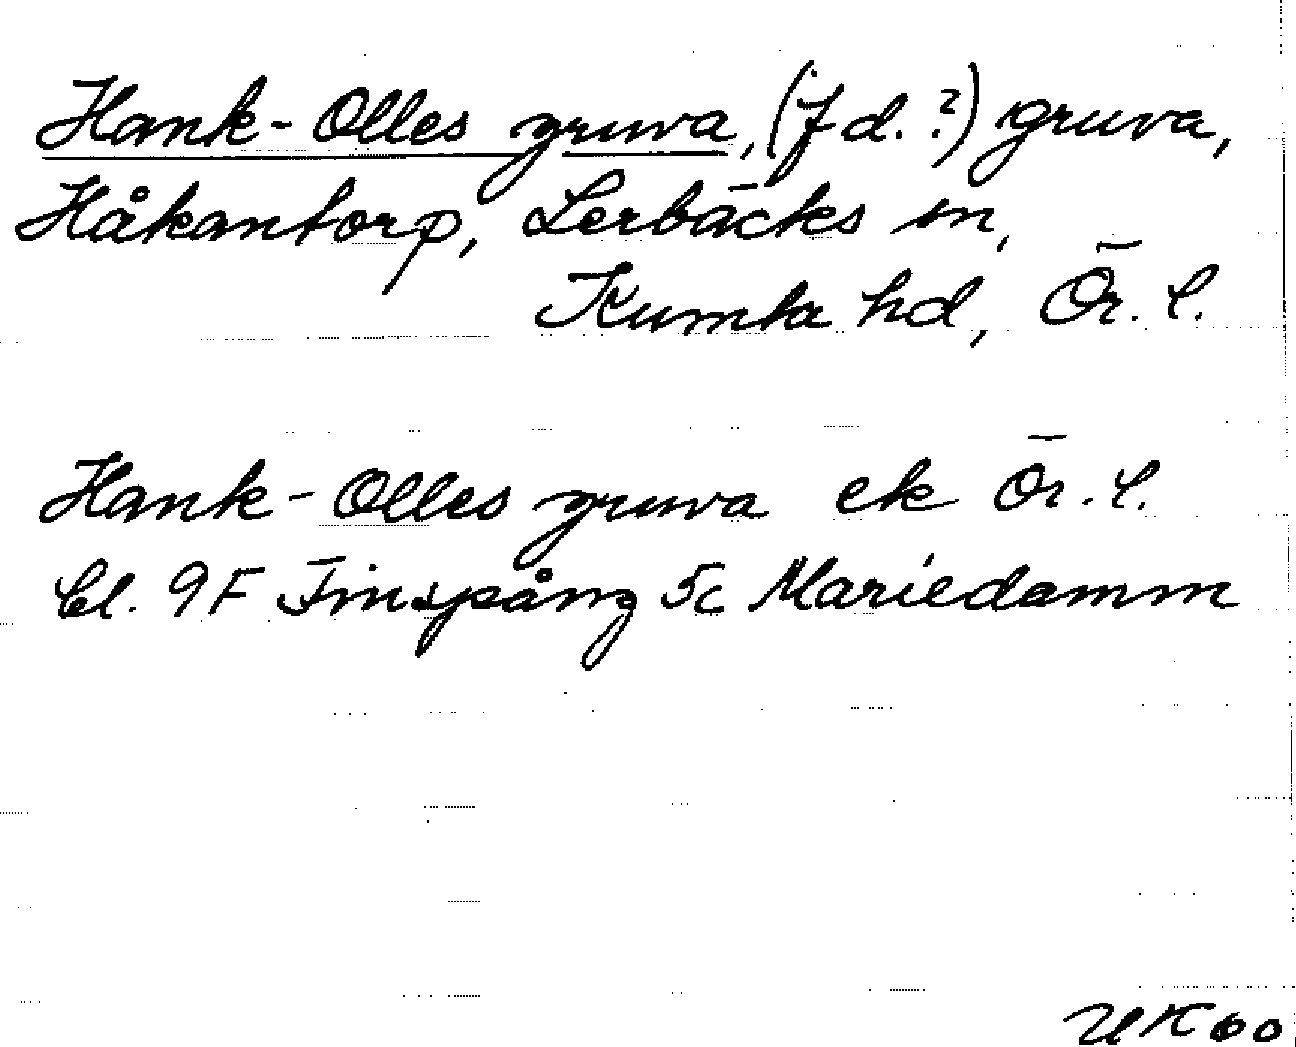 Hank-Olles gruva, (f d. ?) gruva,
Håkantorp, Lerbäcks sn,
Kumla hd, Ör. l.
Hank-Olles gruva ek Ör. l.
bl. 9F Finspång 5c Mariedamm